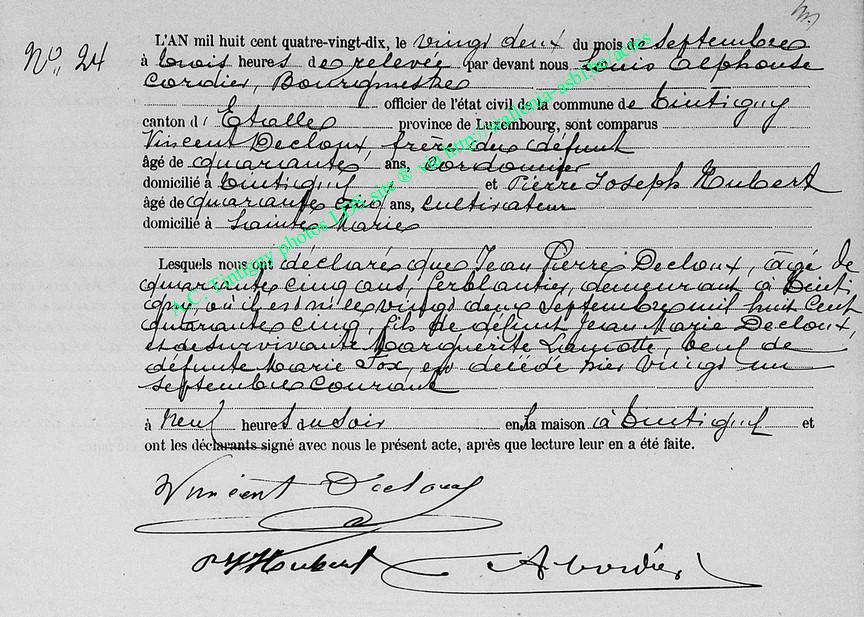 No. 24
L'AN mil huit cent quatre-vingt-dix, le vingt deux du mois de septembre
à trois heures de relevée par devant nous Louis Alphonse
Cordier, Bourgmestre
officier de l'état civil de la commune de Tintigny
canton d'Etalle province de Luxembourg, sont comparus
Vincent Decloux, frère du défunt
âgé de quarante ans, cordonnier
domicilié à Tintigny et Pierre Joseph Hubert
âgé de quarante cinq ans, cultivateur
domicilié à Sainte Marie
Lesquels nous ont déclaré que Jean Pierre Decloux, âgé de
quarante cinq ans, ferblantier, demeurant à Tinti-
gny, où il est né le vingt deux septembre mil huit cent
quarante cinq, fils de défunt Jean Marie Decloux,
et de survivante Marguerite Lamotte, veuf de
défunte Marie Fox, est décédé hier vingt un
septembre courant
à neuf heures du soir en la maison à Tintigny et
ont les déclarants signé avec nous le présent acte, après que lecture leur en a été faite.
Vincent Decloux
PJ Hubert A Cordier
A.C. Tintigny photos LDS site ® via http://wallonia-asbl.be/actes